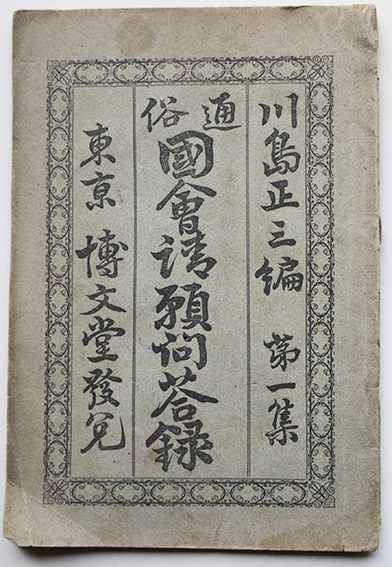 川島正三編 第一集
通俗
國會請願問答録
東京 博文堂發兌